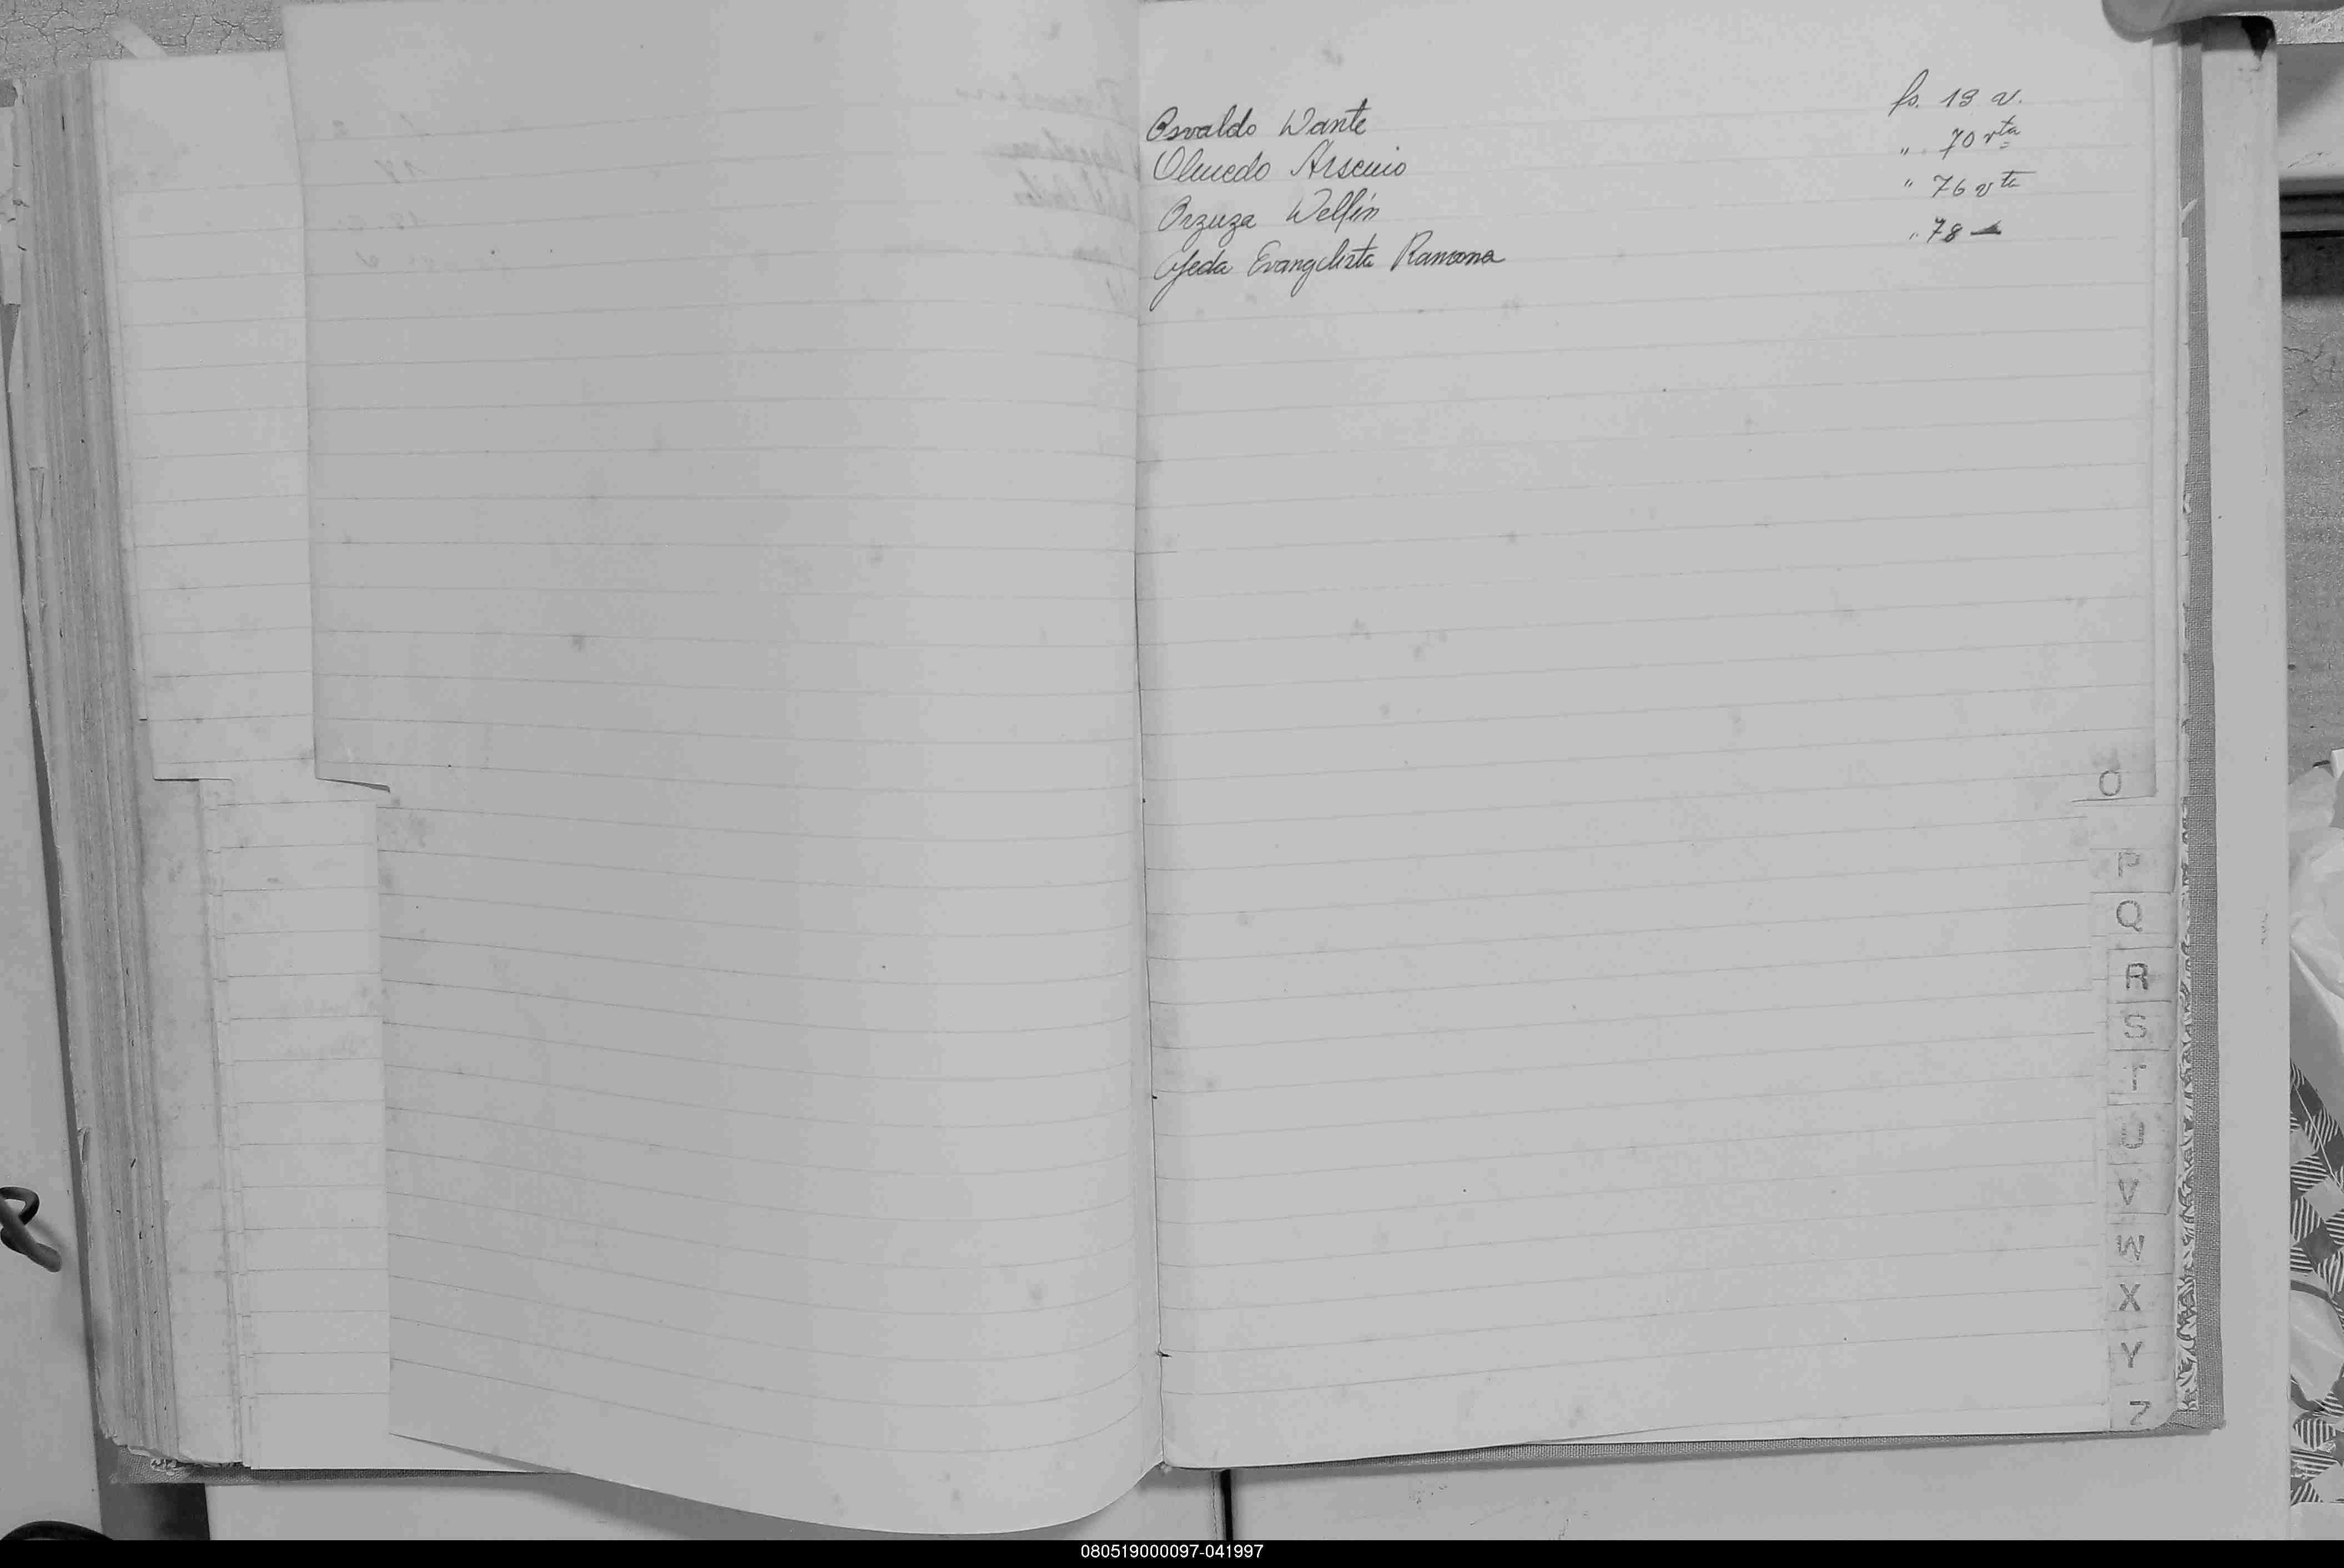 Osvaldo Dante fs. 19 v.
Olmedo Arsenio " 70 vta
Orzuza Delfín " 76 vta
Ojeda Evangelista Ramona " 78 —
O
P
Q
R
S
T
U
V
W
X
Y
Z
080519000097-041997